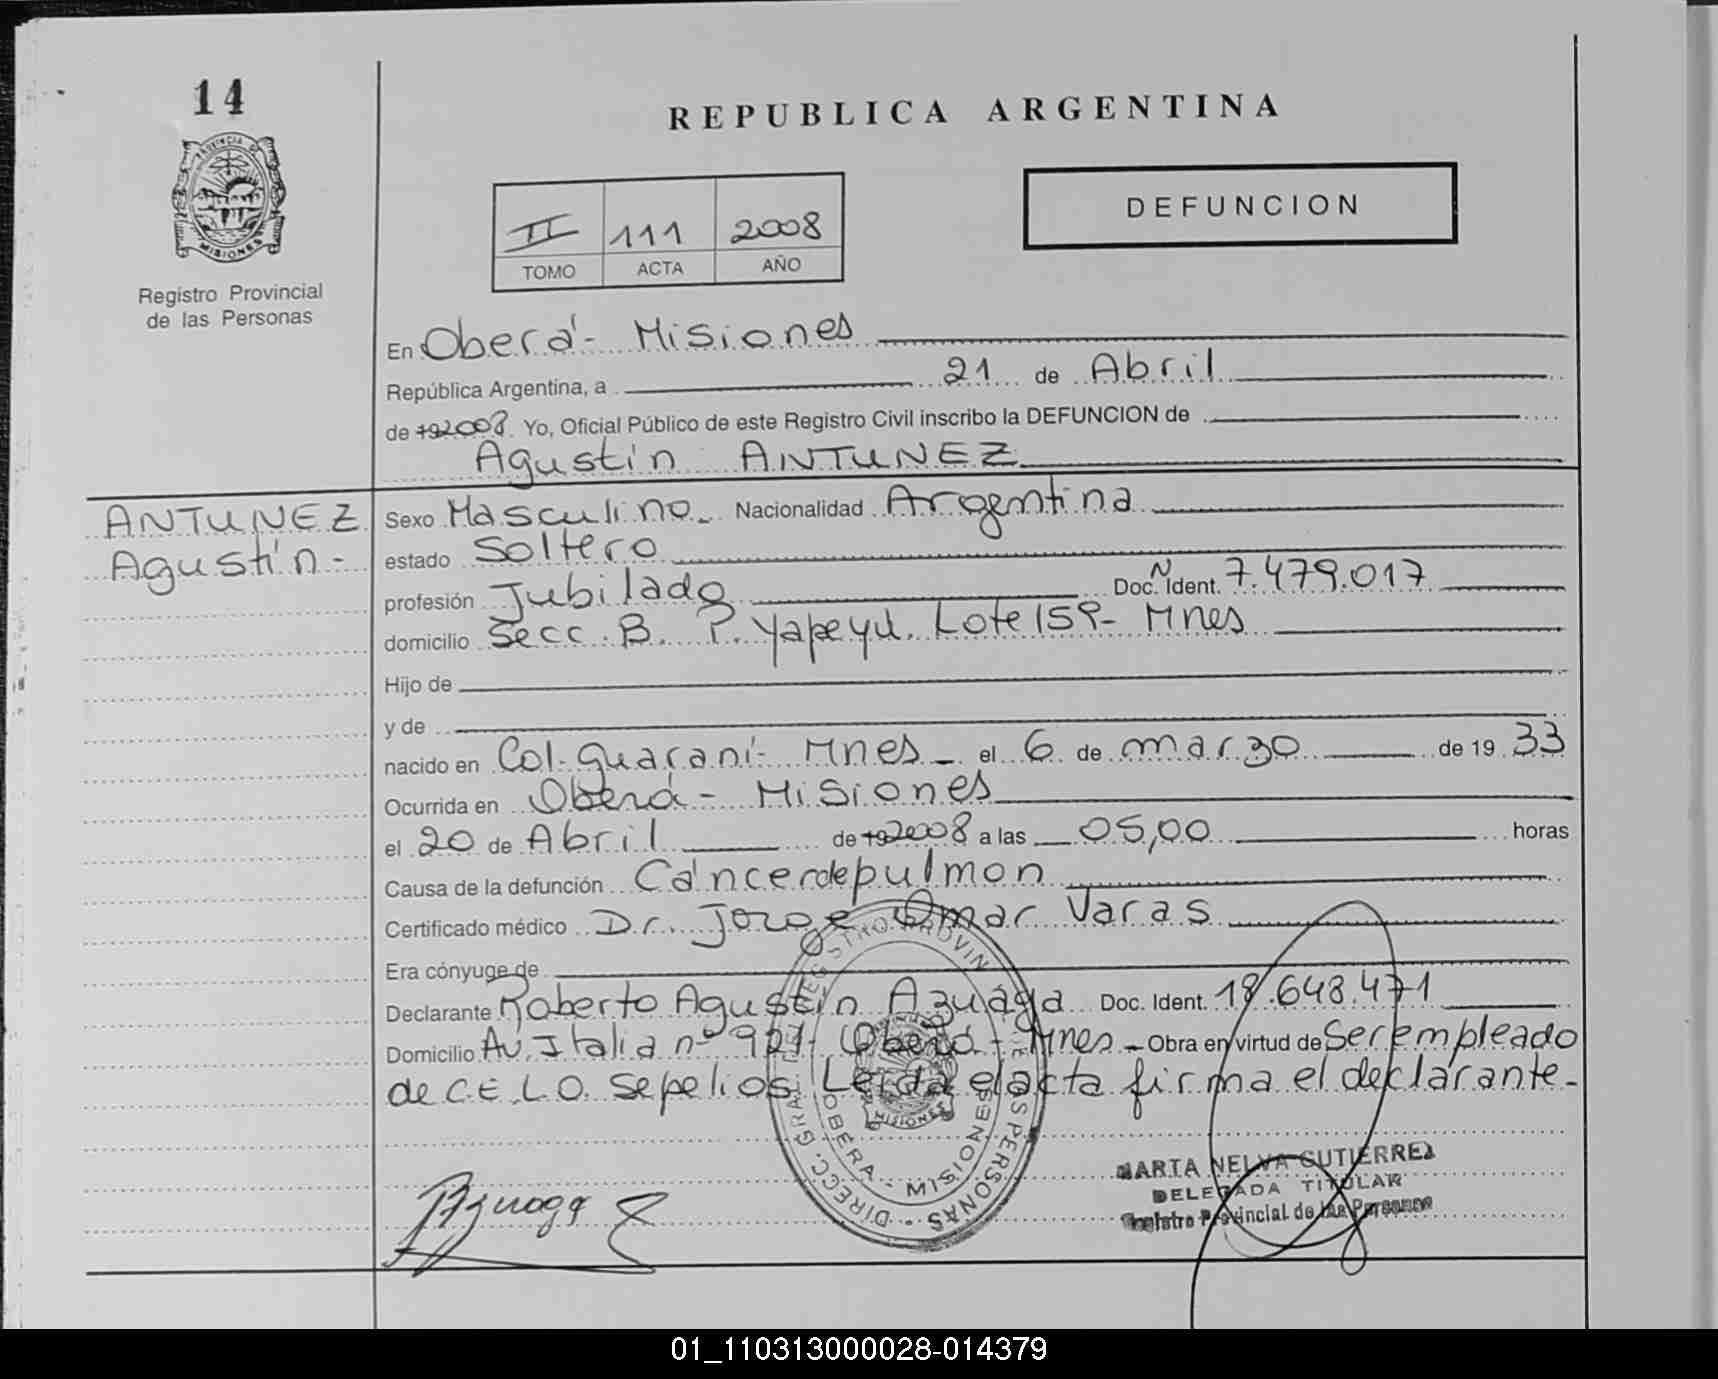 14
REPUBLICA ARGENTINA
PROVINCIA DE
MISIONES
Registro Provincial
de las Personas
II 111 2008
TOMO ACTA AÑO
DEFUNCION
En Oberá - Misiones
República Argentina, a 21 de Abril
de 192008. Yo, Oficial Público de este Registro Civil inscribo la DEFUNCION de
Agustín ANTUNEZ
ANTUNEZ
Agustín -
Sexo Masculino Nacionalidad Argentina
estado Soltero
profesión Jubilado Doc. N Ident. 7.479.017
domicilio Secc. B. P. Yapeyú. Lote 159 - Mnes
Hijo de
y de
nacido en Col. Guaraní - Mnes el 6 de marzo de 19 33
Ocurrida en Oberá - Misiones
el 20 de Abril de 192008 a las 05,00 horas
Causa de la defunción Cáncer de pulmon
Certificado médico Dr. Jorge Omar Varas
Era cónyuge de
Declarante Roberto Agustín Azuága Doc. Ident. 18.648.471
Domicilio Av. Italia nº 927 - Oberá - Mnes - Obra en virtud de Ser empleado
de C.E.L.O. Sepelios. Leída el acta firma el declarante -
DIRECC. GRAL. REGISTRO PROVIN DE LAS PERSONAS
OBERA - MISIONES
MISIONES
MARTA NELVA GUTIERREZ
DELEGADA TITULAR
Registro Provincial de las Personas
01_110313000028-014379